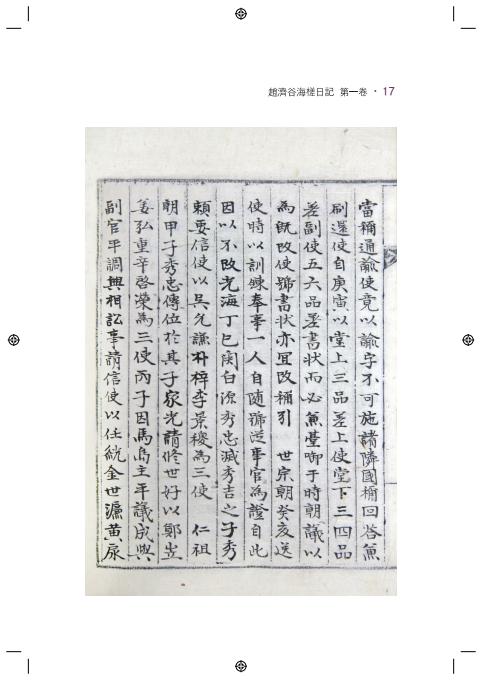 趙濟谷海槎日記 第一卷 · 17
當稱通諭使竟以諭字不可施諸隣國稱回答兼
刷還使自庚寅以堂上三品差上使堂下三四品
差副使五六品差書狀而必兼臺啣于時朝議以
為旣改使號書狀亦宜改稱引 世宗朝癸亥送
使時以訓鍊奉事一人自隨號從事官為證自此
因以不改光海丁巳関白源秀忠滅秀吉之子秀
賴要信使以吳允謙朴梓李景稷為三使 仁祖
朝甲子秀忠傳位於其子家光請修世好以鄭岦
姜弘重辛啓榮為三使丙子因馬島主平義成與
副官平調興相訟事請信使以任絖金世濂黃㦿